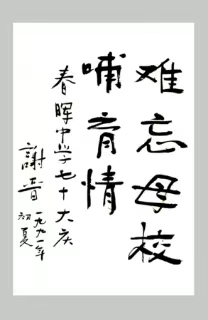 难忘母校
哺育情
春晖中学七十大庆
謝晋
一九九一年
初夏